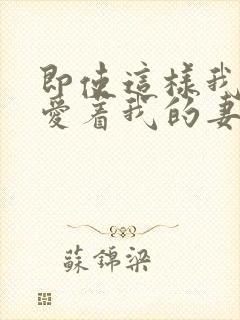 即使這樣我
愛着我的妻
蘇錦梁